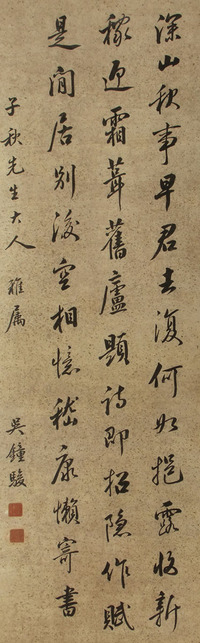 深山秋事早君去復何如挹露收新
稼迎霜葺舊廬題詩即招隐作賦
是閒居別後空相憶嵇康懶寄書
子秋先生大人 雅属 吳鍾駿